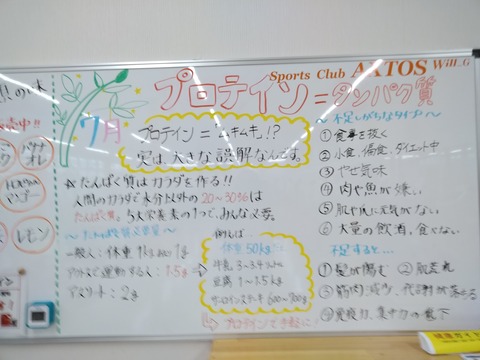 Sports Club AXTOS Will_G
プロテイン=タンパク質
7月
プロテイン="ムキムキ"!?
実は、大きな誤解なんです。
☆たんぱく質はカラダを作る!!
人間のカラダで水分以外の20~30%は
たんぱく質。5大栄養素の1つで、みんな必要。
一般人:体重1kgあたり1g
アクトスで運動する人:1.5g
アスリート:2g
例えば
体重50kgだと
牛乳
豆腐
サーロインステキ
プロテインで手軽に!
~不足しがちなタイプ~
①食事を抜く
②小食、偏食、ダイエット中
③やせ気味
④肉や魚が嫌い
⑤肌や爪に元気がない
⑥大量の飲酒、食べない
不足すると…
①髪が傷む ②肌荒れ
③筋肉減少、代謝が落ちる
④免疫力、集中力の低下
の味
バナナ
オレ
レモン